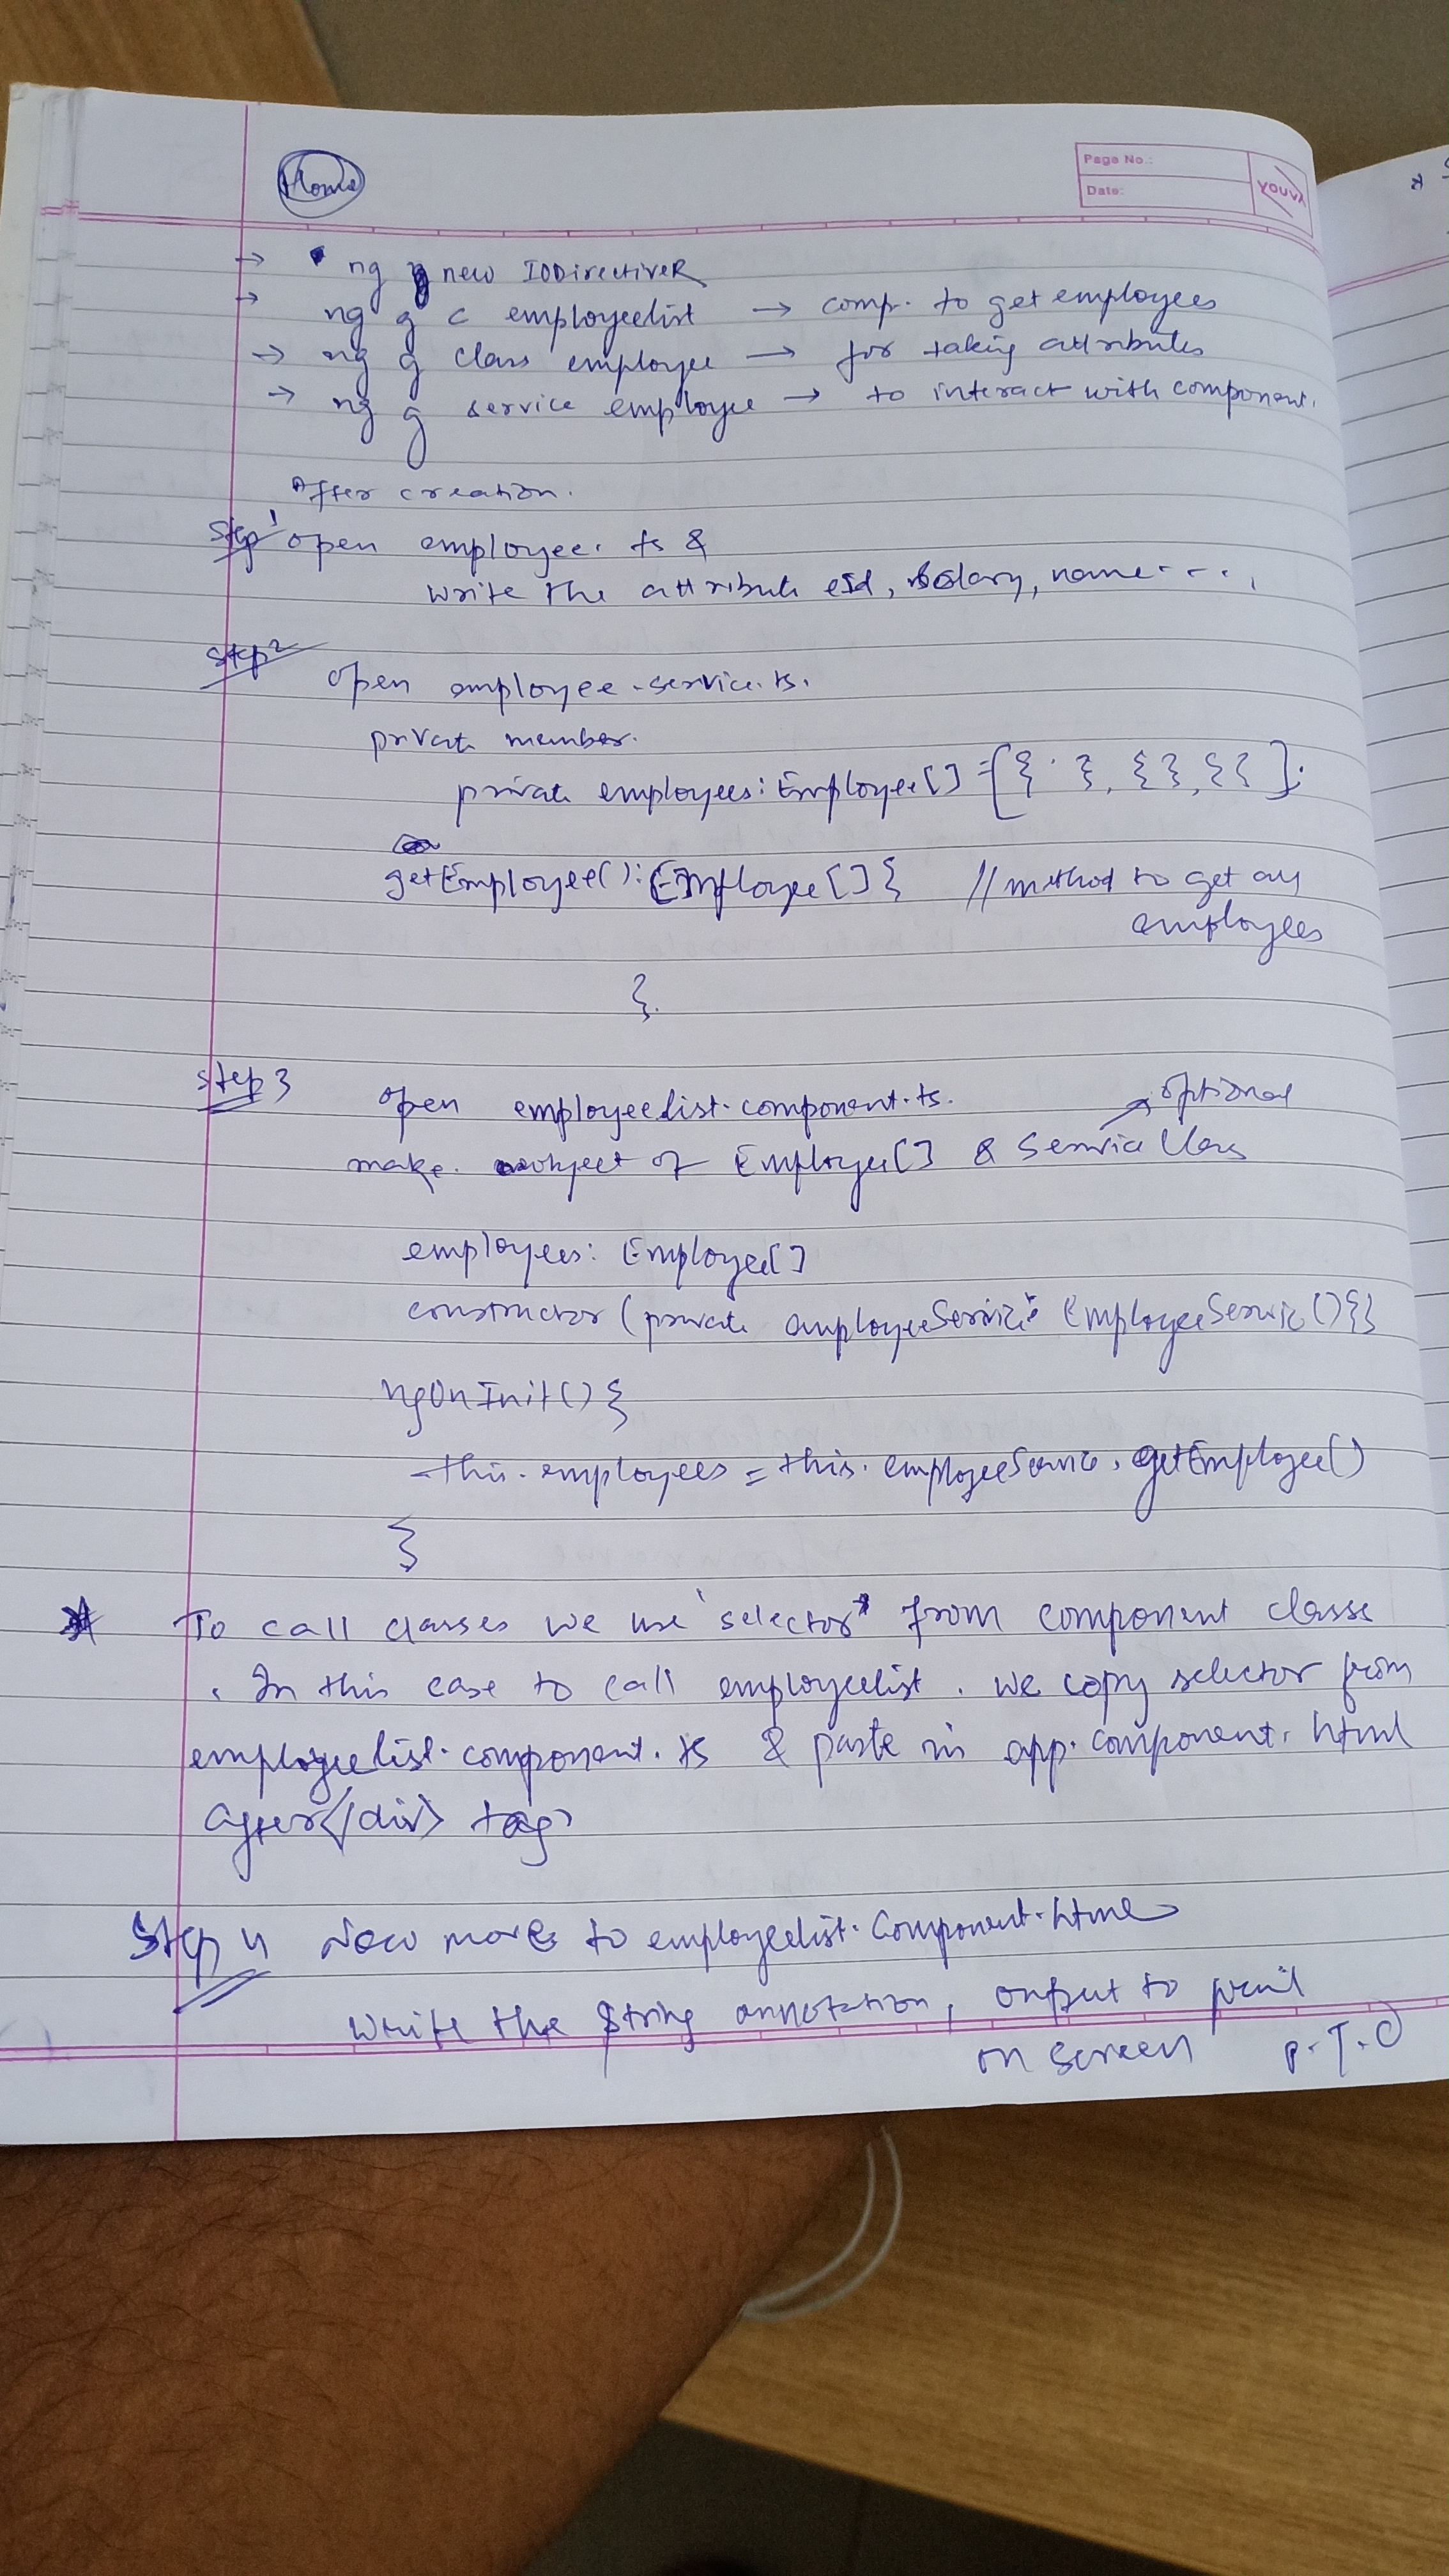 Home
Page No.:
Date:
YOUVA
→ ng new IODirectiveR
→ ng g c employeelist → comp. to get employees
→ ng g class employee → for taking attributes
→ ng g service employee → to interact with component.
After creation.
Step 1 open employee. ts &
write the attribute eid, salary, name - - - ,
Step 2
open employee-service.ts.
private member.
private employees: Employee[] = [{ }, {}, {}];
getEmployee(): Employee[]{ // method to get all
employees
}.
Step 3
open employeelist.component.ts. optional
make object of Employee[] & Service Class
employees: Employee[]
constructor (private employeeService: EmployeeService(){}
ngOnInit(){
this.employees = this.employeeService.getEmployee()
}
To call classes we use 'selector' from component classe
. In this case to call employeelist. we copy selector from
employeelist.component.ts & paste in app.component.html
after </div> tag
Step 4 Now move to employeelist.component.html
write the string annotation, output to print
on screen P.T.O